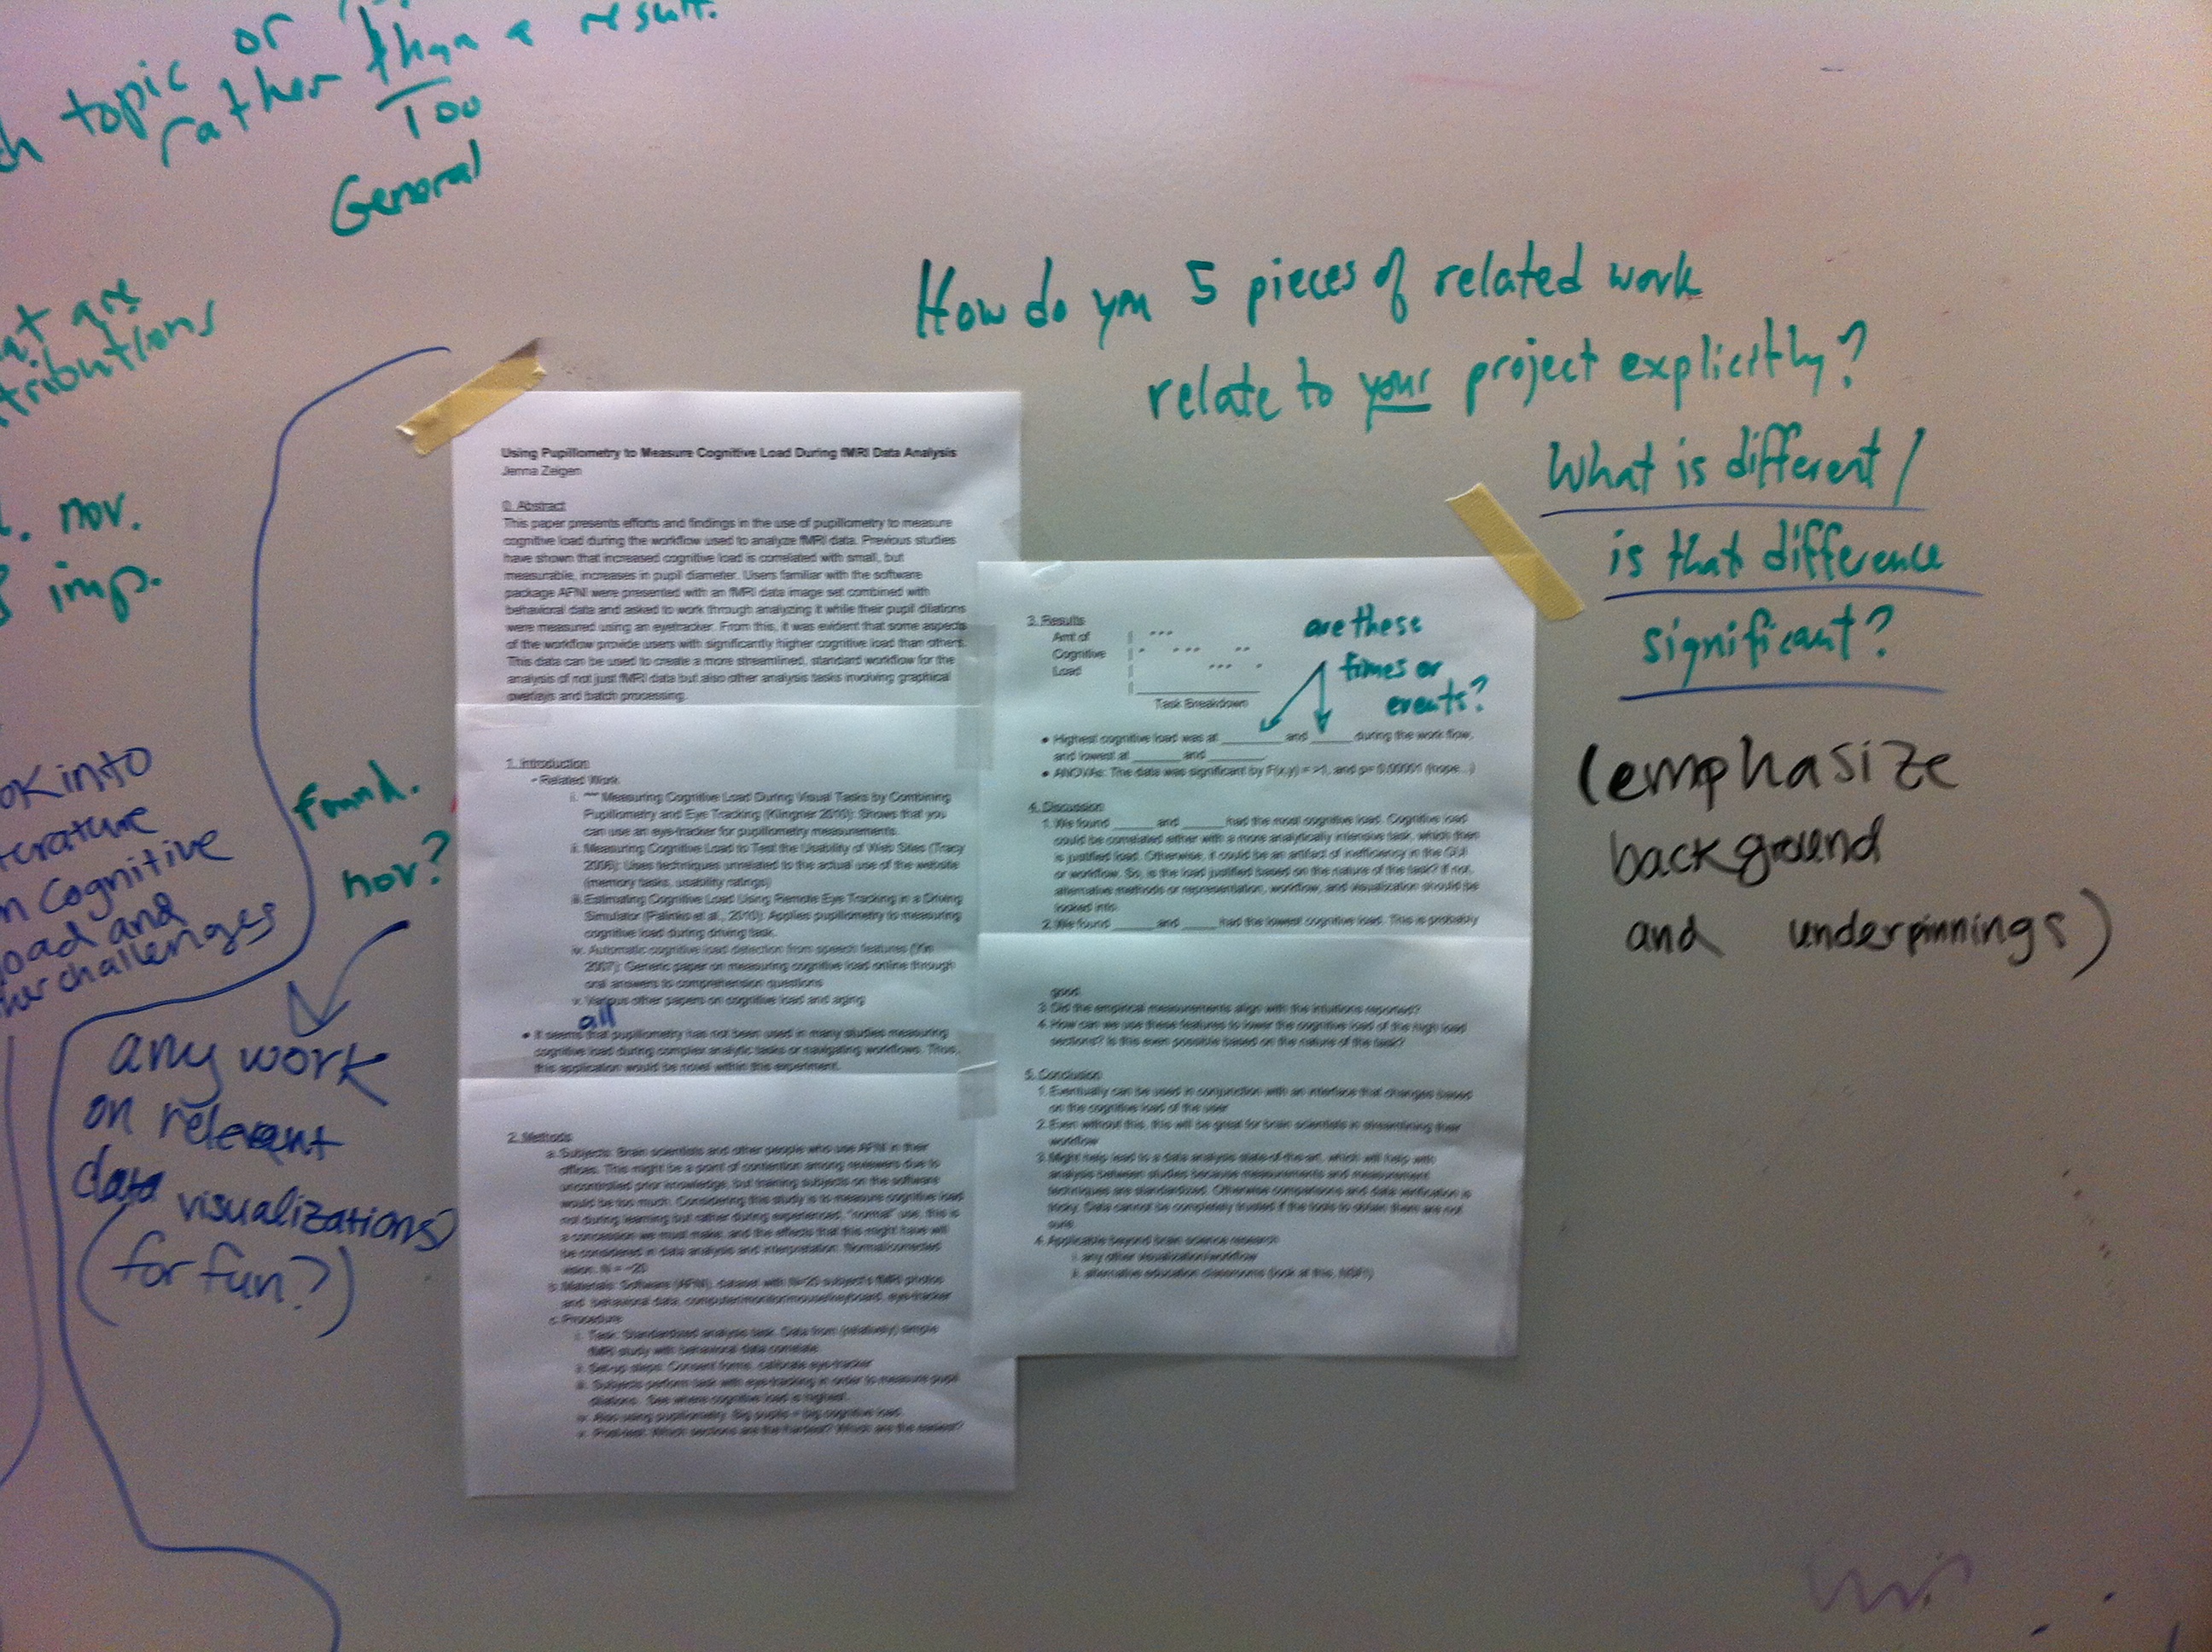 topic or
rather than a result.
Too
General
at are
tributions
nov.
imp.
How do you 5 pieces of related work
relate to your project explicitly?
What is different /
is that difference
significant?
(emphasize
background
and underpinnings)
ok into
erature
n Cognitive
oad and
her challenges
found.
nov?
any work
on relevant
data visualizations
(for fun?)
Using Pupillometry to Measure Cognitive Load During fMRI Data Analysis
Jenna Zeigen
0. Abstract
This paper presents efforts and findings in the use of pupillometry to measure
cognitive load during the workflow used to analyze fMRI data. Previous studies
have shown that increased cognitive load is correlated with small, but
measurable, increases in pupil diameter. Users familiar with the software
package AFNI were presented with an fMRI data image set combined with
behavioral data and asked to work through analyzing it while their pupil dilations
were measured using an eyetracker. From this, it was evident that some aspects
of the workflow provide users with significantly higher cognitive load than others.
This data can be used to create a more streamlined, standard workflow for the
analysis of not just fMRI data but also other analysis tasks involving graphical
overlays and batch processing.
1. Introduction
- Related Work
i. *** Measuring Cognitive Load During Visual Tasks by Combining
Pupillometry and Eye Tracking (Klingner 2010): Shows that you
can use an eye-tracker for pupillometry measurements.
ii. Measuring Cognitive Load to Test the Usability of Web Sites (Tracy
2006): Uses techniques unrelated to the actual use of the website
(memory tasks, usability ratings)
iii. Estimating Cognitive Load Using Remote Eye Tracking in a Driving
Simulator (Palinko et al., 2010): Applies pupillometry to measuring
cognitive load during driving task.
iv. Automatic cognitive load detection from speech features (Yin
2007): Generic paper on measuring cognitive load online through
oral answers to comprehension questions
v. Various other papers on cognitive load and aging
all
• It seems that pupillometry has not been used in many studies measuring
cognitive load during complex analytic tasks or navigating workflows. Thus,
this application would be novel within this experiment.
2. Methods
a. Subjects: Brain scientists and other people who use AFNI in their
offices. This might be a point of contention among reviewers due to
uncontrolled prior knowledge, but training subjects on the software
would be too much. Considering this study is to measure cognitive load
not during learning but rather during experienced, "normal" use, this is
a concession we must make, and the effects that this might have will
be considered in data analysis and interpretation. Normal/corrected
vision. N = ~20
b. Materials: Software (AFNI), dataset with N=20 subject's fMRI photos
and behavioral data, computer/monitor/mouse/keyboard, eyetracker
c. Procedure
i. Task: Standardized analysis task. Data from (relatively) simple
fMRI study with behavioral data correlate.
ii. Set-up steps: Consent forms, calibrate eye-tracker
iii. Subjects perform task with eye-tracking in order to measure pupil
dilations. See where cognitive load is highest.
iv. Also using pupillometry. Big pupils = big cognitive load.
v. Post-test: Which sections are the hardest? Which are the easiest?
3. Results
Amt of
Cognitive
Load
Task Breakdown
are these
times or
events?
• Highest cognitive load was at ______ and ______ during the work flow,
and lowest at ______ and ______.
• ANOVAs: The data was significant by F(x,y) = >1, and p= 0.00001 (hope...)
4. Discussion
1. We found ______ and ______ had the most cognitive load. Cognitive load
could be correlated either with a more analytically intensive task, which then
is justified load. Otherwise, it could be an artifact of inefficiency in the GUI
or workflow. So, is the load justified based on the nature of the task? If not,
alternative methods or representation, workflow, and visualization should be
looked into.
2. We found ______ and ______ had the lowest cognitive load. This is probably
good.
3. Did the empirical measurements align with the intuitions reported?
4. How can we use these features to lower the cognitive load of the high load
sections? Is this even possible based on the nature of the task?
5. Conclusion
1. Eventually can be used in conjunction with an interface that changes based
on the cognitive load of the user
2. Even without this, this will be great for brain scientists in streamlining their
workflow
3. Might help lead to a data analysis state-of-the-art, which will help with
analysis between studies because measurements and measurement
techniques are standardized. Otherwise comparisons and data verification is
tricky. Data cannot be completely trusted if the tools to obtain them are not
sure.
4. Applicable beyond brain science research
i. any other visualization/workflow
ii. alternative education classrooms (look at this, NSF!)